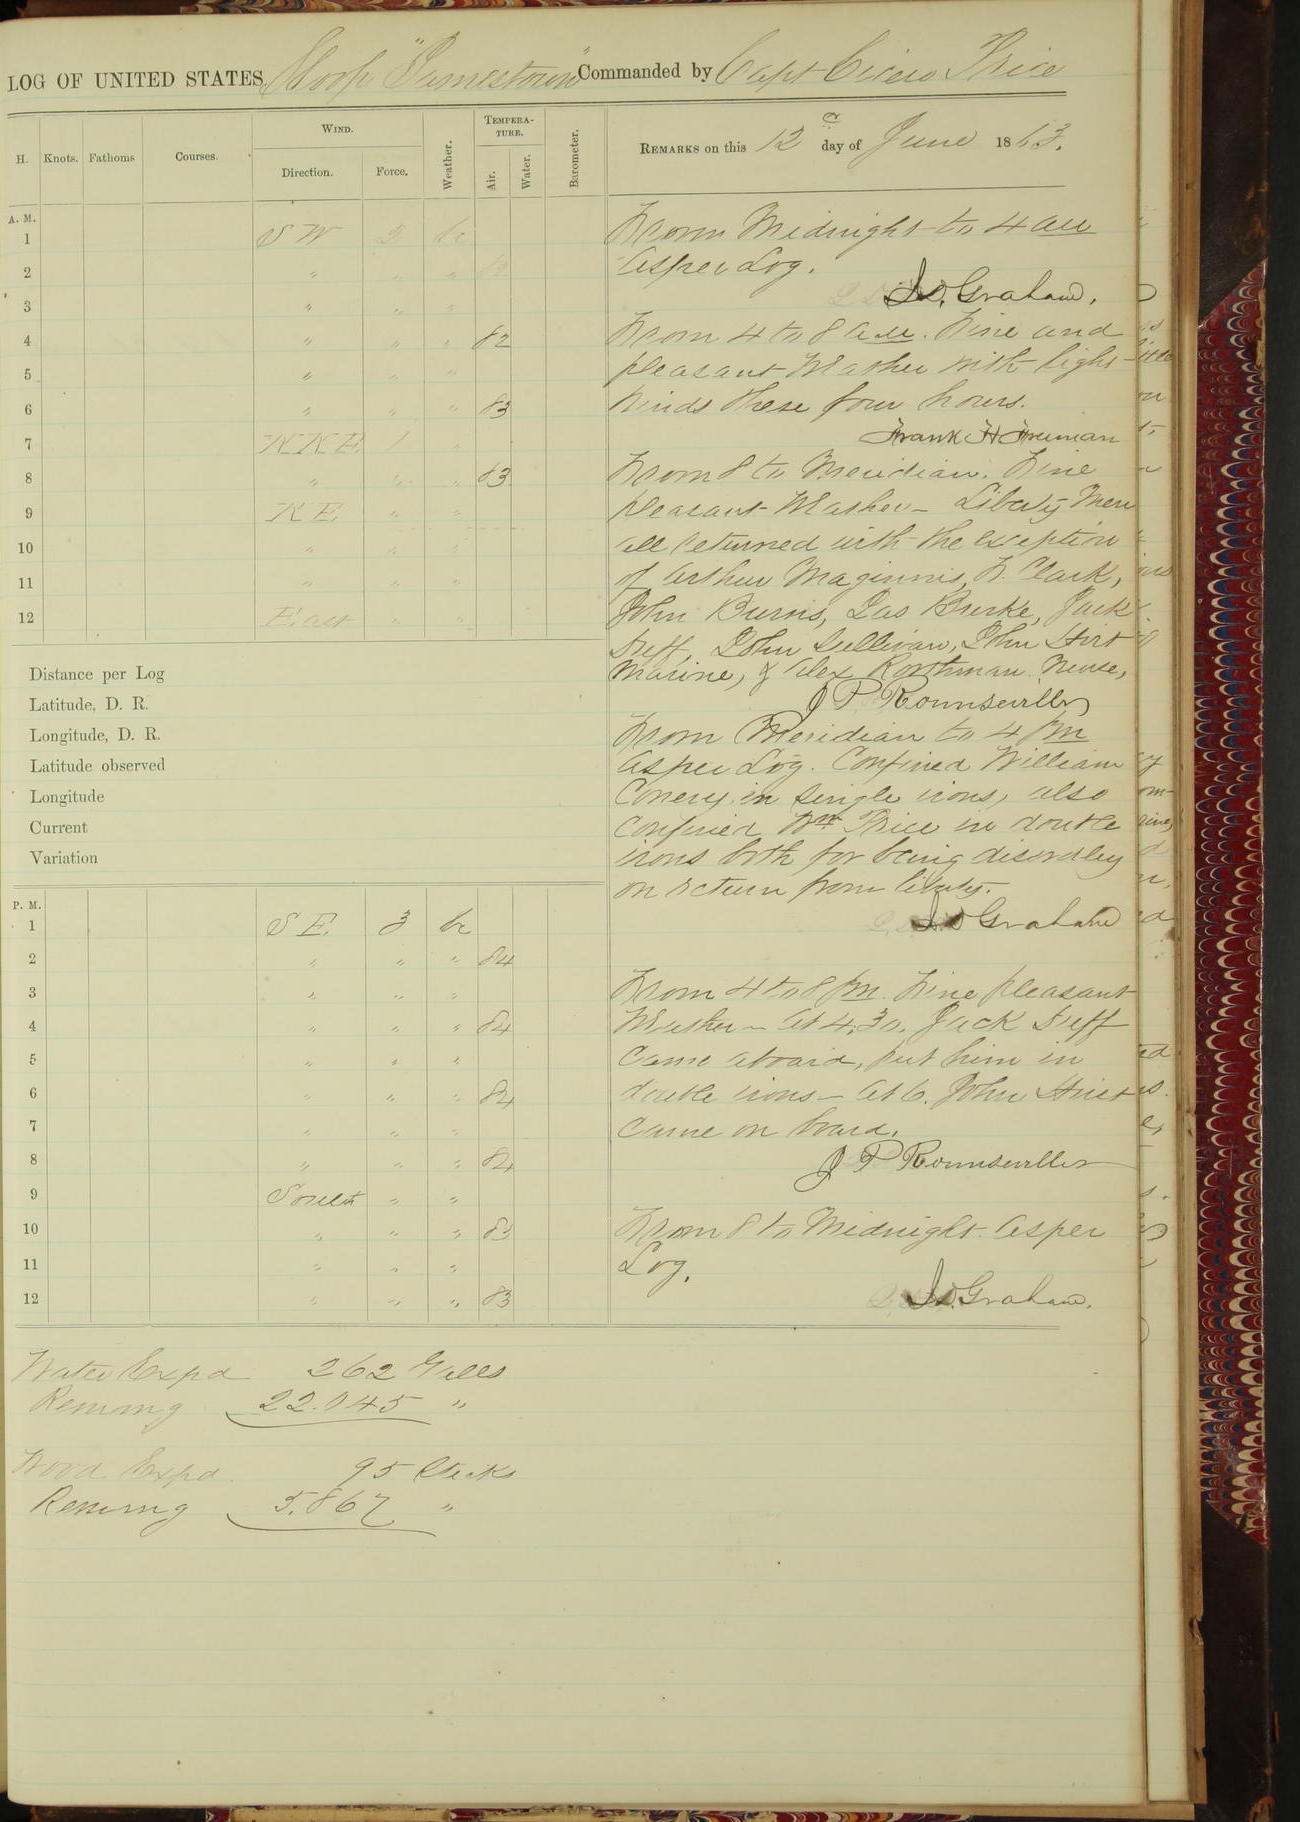 LOG OF UNITED STATES Sloop "Jamestown" Commanded by Capt Cicero Price
H. Knots. Fathoms Courses. WIND. Direction. Force. Weather. TEMPERATURE. Air. Water. Barometer.
REMARKS on this 12 day of June 1863.
A. M.
1 S W 2 bc
2 " " "
3 " " "
4 " " " 82
5 " " "
6 " " " 83
7 NNE 1 "
8 " " " 83
9 NE. " "
10 " " "
11 " " "
12 East " "
Distance per Log
Latitude, D. R.
Longitude, D. R.
Latitude observed
Longitude
Current
Variation
P. M.
1 SE. 3 bc
2 " " " 84
3 " " "
4 " " " 84
5 " " "
6 " " " 84
7 " " "
8 " " " 84
9 South " "
10 " " " 83
11 " " "
12 " " " 83
From Midnight to 4 am
As per Log.
Graham.
From 4 to 8 am. Fine and
pleasant Weather with light
winds these four hours.
Frank H Freeman
From 8 to Meridian. Fine
pleasant Weather – Liberty Men
all returned with the exception
of Arthur Maginnis, Clark,
John Burns, Jas Burke, Jack
Duff, John Sullivan, John Hirst
Marine, & Alex Nurse,
J P Rounsevller
From Meridian to 4 pm
As per Log. Confined William
Conery in single irons, also
confined Wm Price in double
irons both for being disorderly
on return from liberty.
Graham
From 4 to 8 pm. Fine pleasant
Weather – At 4,30. Jack Duff
came aboard, put him in
double irons – At 6. John Hirst
came on board.
J P Rounsevller
From 8 to Midnight As per
Log.
Graham.
Water Expd 262 Galls
Remang 22.045 "
Wood Expd. 95 Sticks
Remang 5.867 "